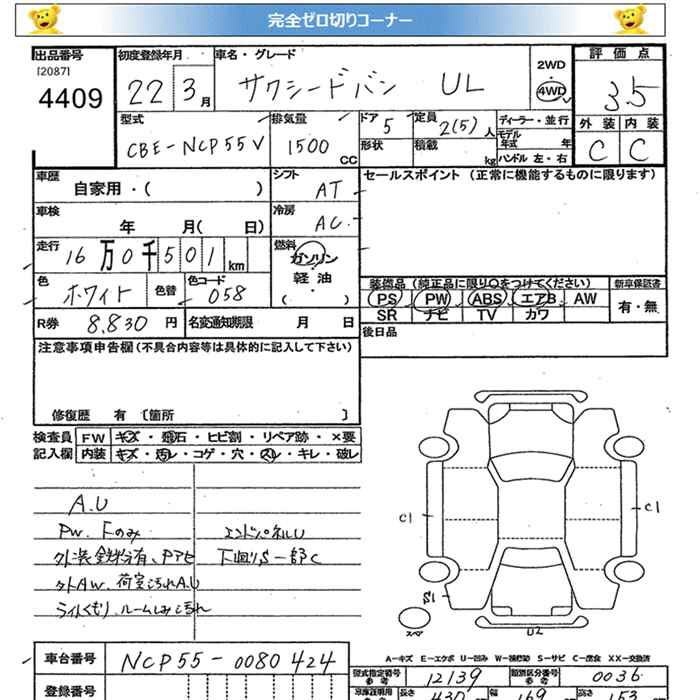 完全ゼロ切りコーナー
出品番号 初度登録年月 車名・グレード 2WD・4WD 評価点
[2087]
4409 22 3月 サクシードバン UL 3.5
型式 排気量 ドア 定員 ディーラー・並行 外装 内装
CBE-NCP55V 1500 CC 5 2(5)人 モデル年式 年 C C
形状 積載 kg ハンドル 左・右
車歴 シフト セールスポイント (正常に機能するものに限ります)
自家用・( ) AT
車検 冷房
年 月( 日) AC
走行 燃料
16万0千501km ガソリン
軽油
( ・ )
色 色替 色コード 装備品 (純正品に限り○をつけてください) 新車保証書
ホワイト 058 PS PW ABS エアB AW 有・無
R券 8,830 円 名変通知期限 月 日 SR ナビ TV カワ
注意事項申告欄(不具合内容等は具体的に記入して下さい) 後日品
修復歴 有 [箇所 ]
検査員 FW キズ・飛石・ヒビ割・リペア跡・×要
記入欄 内装 キズ・汚れ・コゲ・穴・スレ・キレ・破レ
A.U
PW.Fのみ エンドパネルU
外装鉄粉有、Pアセ 下廻りS一部C
タトAW.荷室汚れA.U
ライトくもり.ルームしみ汚れ
C1 C1
S1
スペア U2
A-キズ E-エクボ U-凹み W-補修跡 S-サビ C-腐食 XX-交換済
車台番号 NCP55-0080424 型式指定番号 参考 12139 類別区分番号 参考 0036
登録番号 車庫証明用 参考 長さ 430 幅 169 高さ 153